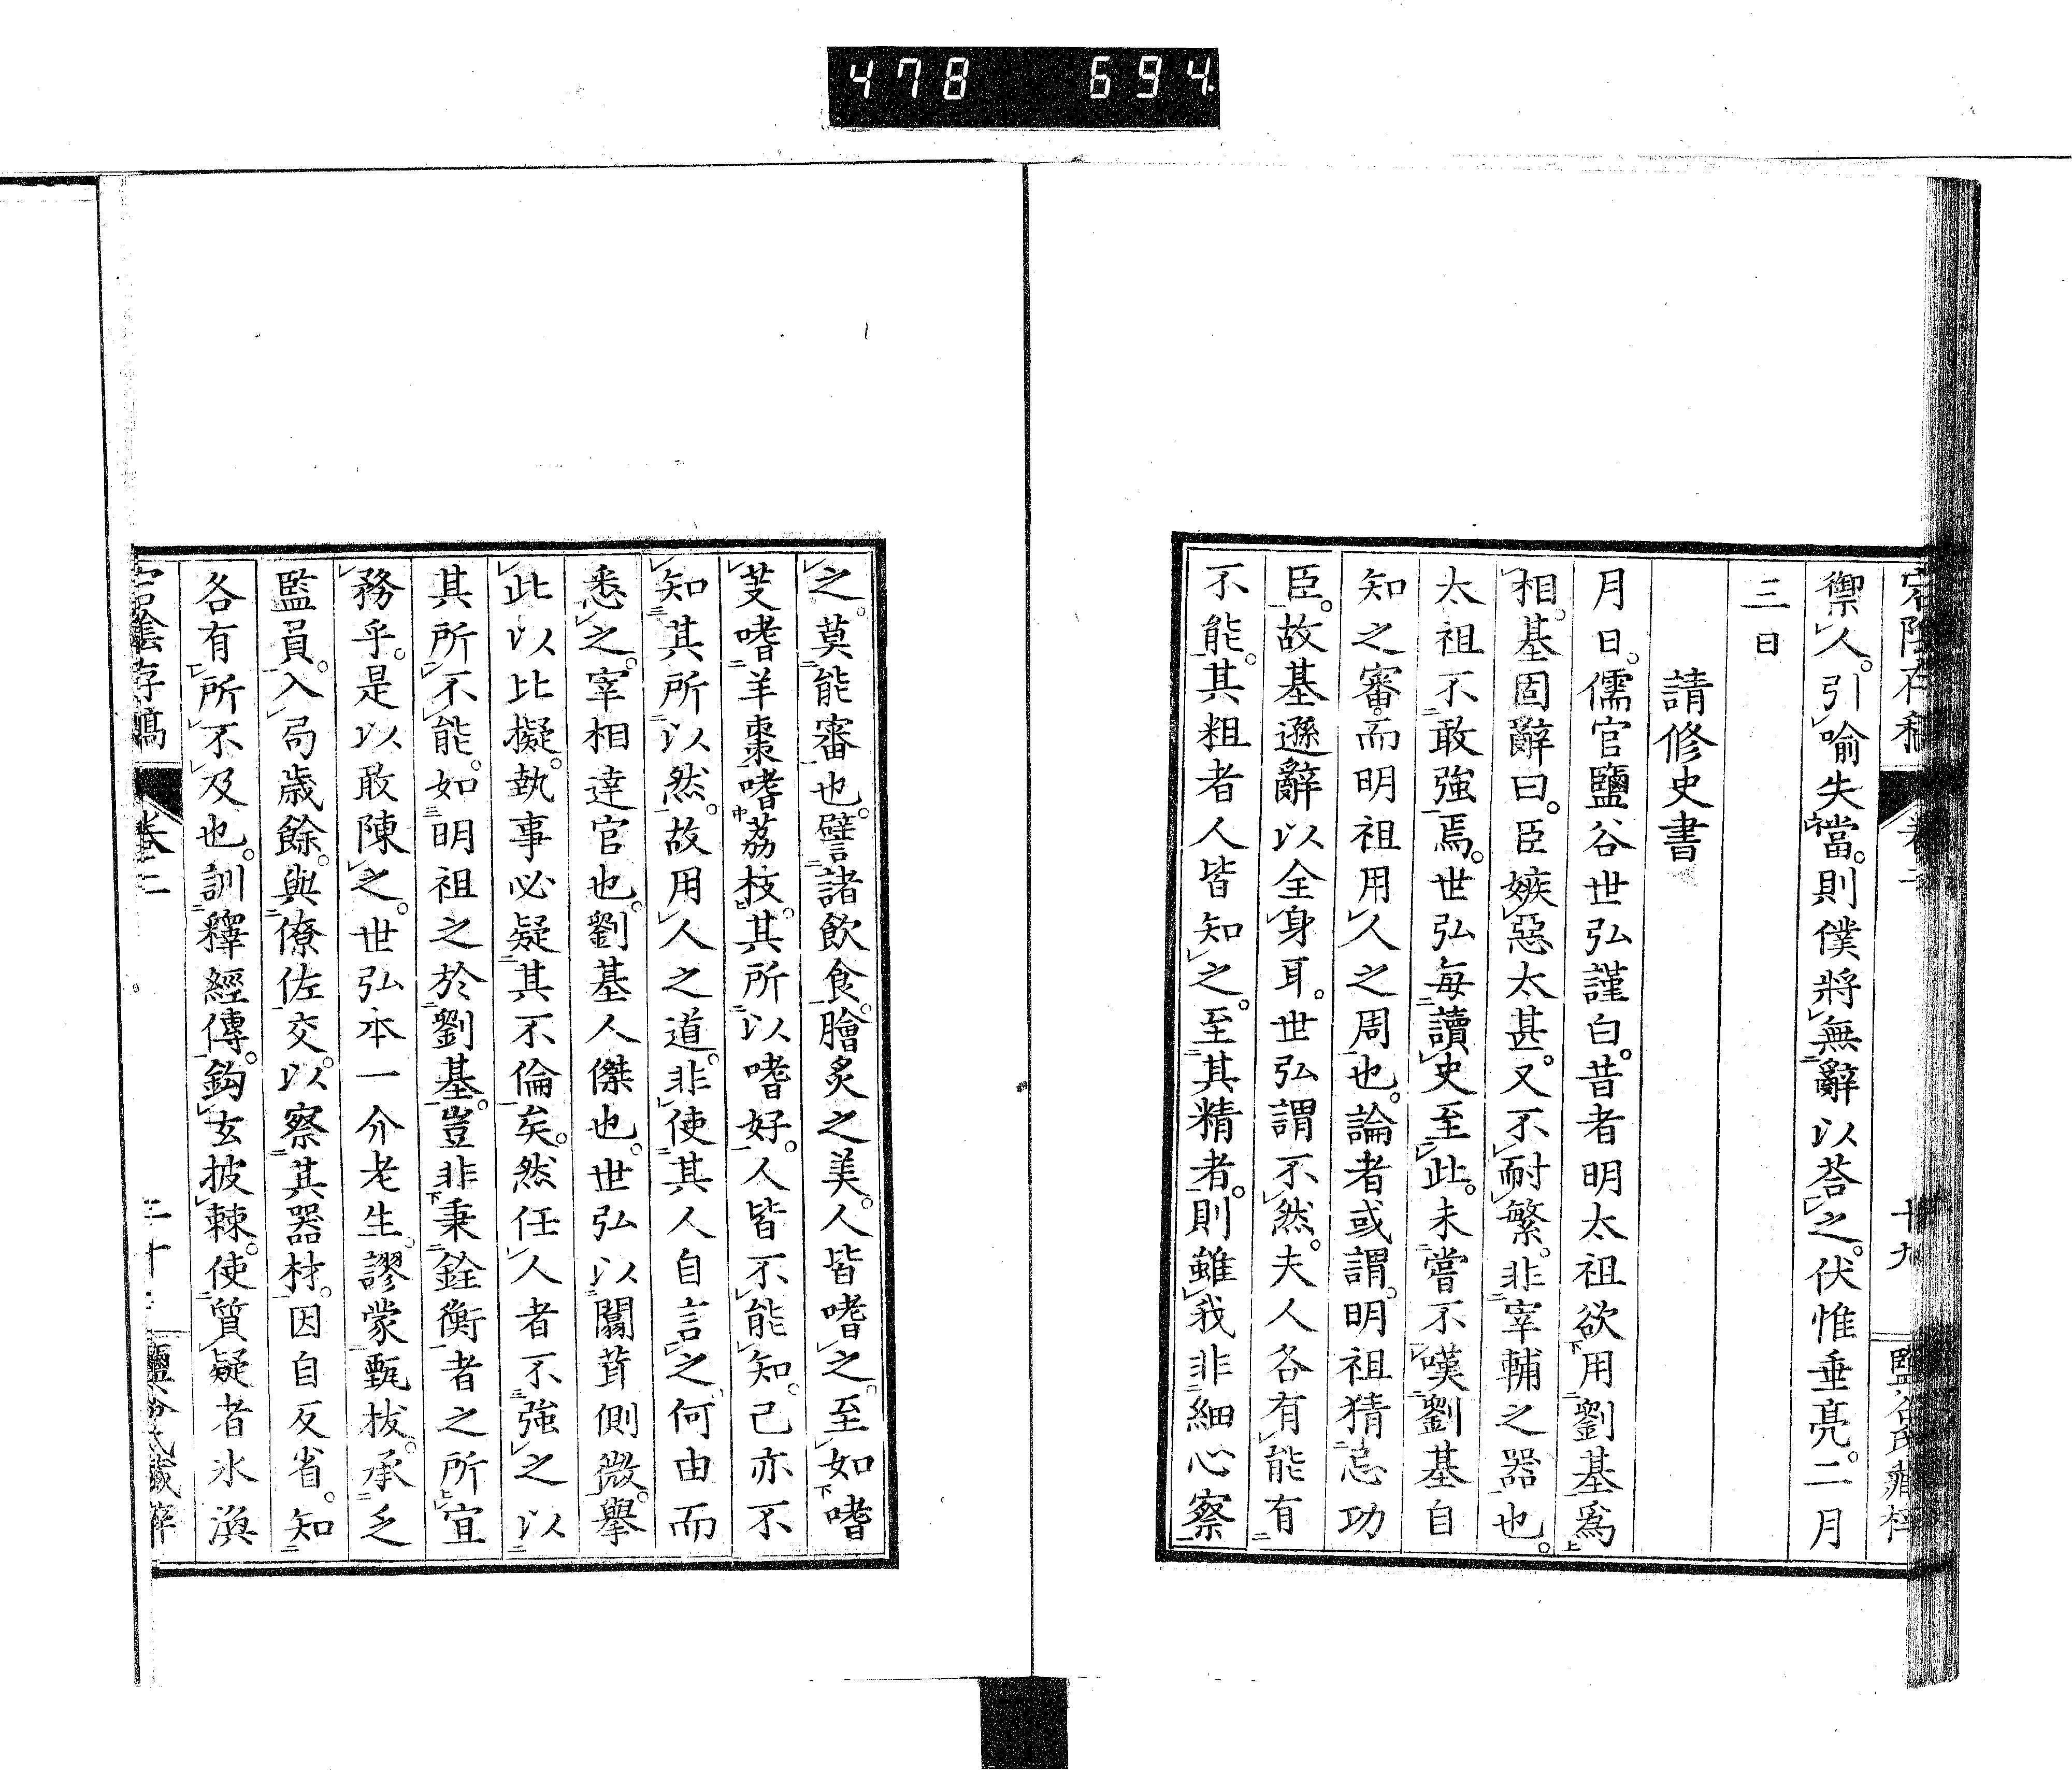 478 694
宕陰存稿 卷二 十九 鹽谷氏藏梓
禦人。引喻失當。則僕將無辭以荅之。伏惟垂亮。二月
三日
請修史書
月日。儒官鹽谷世弘謹白。昔者明太祖欲用劉基爲
相。基固辭曰。臣嫉惡太甚。又不耐繁。非宰輔之器也。
太祖不敢強焉。世弘每讀史至此。未嘗不嘆劉基自
知之審。而明祖用人之周也。論者或謂。明祖猜忌功
臣。故基遜辭以全身耳。世弘謂不然。夫人各有能有
不能。其粗者人皆知之。至其精者。則雖我非細心察
之。莫能審也。譬諸飮食。膾炙之美。人皆嗜之。至如嗜
芰嗜羊棗嗜荔枝。其所以嗜好。人皆不能知。己亦不
知其所以然。故用人之道。非使其人自言之。何由而
悉之。宰相達官也。劉基人傑也。世弘以闒茸側微。擧
此以比擬。執事必疑其不倫矣。然任人者不強之以
其所不能。如明祖之於劉基。豈非秉銓衡者之所宜
務乎。是以敢陳之。世弘本一介老生。謬蒙甄拔。承乏
監員。入局歲餘。與僚佐交。以察其器材。因自反省。知
各有所不及也。訓釋經傳。鈎玄披棘。使質疑者氷渙
宕陰存稿 卷二 二十 鹽谷氏藏梓